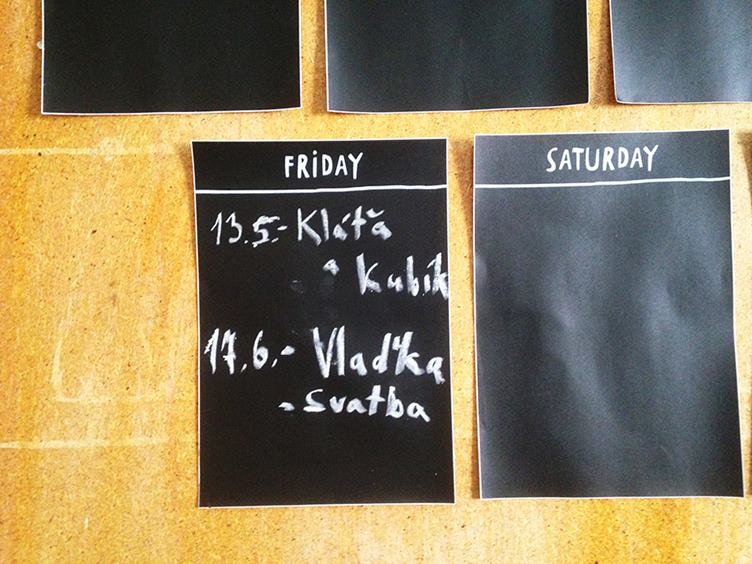 FRiDAY
13.5.- Kláťa
a Kubík
17.6.- Vlaďka
- svatba
SATURDAY